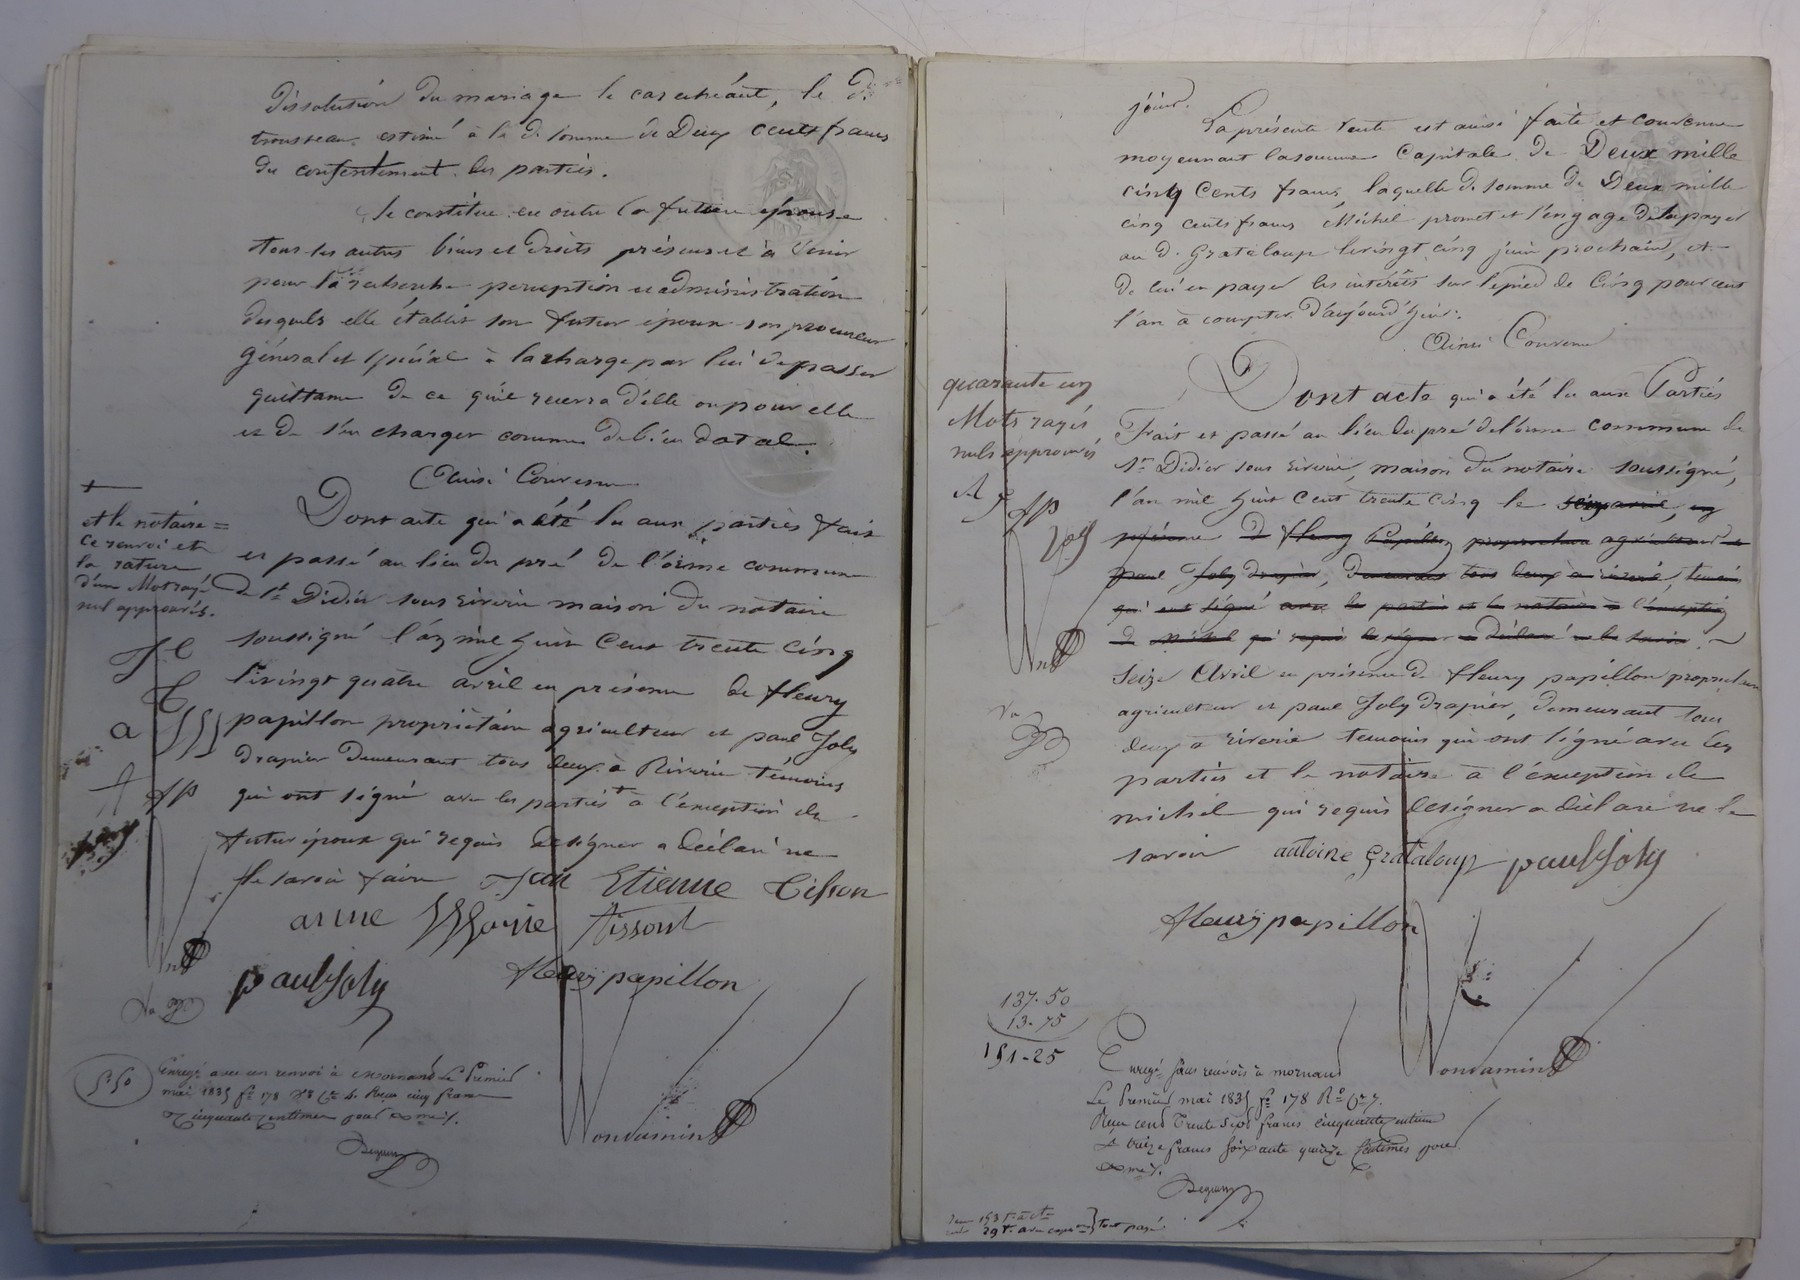 Dissolution du mariage le cas echéant, le d.
trousseau estimé à la d. somme de Deux cents francs
du consentement des parties.
Se constitue en outre la future épouse
tous ses autres biens et droits présens et à venir
pour la recherche perception et administration
desquels elle établit son futur époux son procureur
général et spécial à la charge par lui de passer
quittance de ce qu'il recevra d'elle ou pour elle
et de s'en charger comme de bien dotal.
Ainsi Convenu
Dont acte qui a été lu aux parties fait
et passé au lieu du pré de l'orme commune
de St Didier sous riverie maison du notaire
soussigné l'an mil huit cent trente cinq
le vingt quatre avril en présence de fleury
papillon propriétaire agriculteur et paul Joly
drapier demeurant tous deux à Riverie témoins
qui ont signé avec les parties + à l'exception du
futur époux qui requis de signer a déclaré ne
le savoir faire Jean Etienne Tisson
anne Tissont
paul Joly fleury papillon
+
et le notaire =
ce renvoi et
la rature
d'un Mot rayé
nul approuvés.
JE
T
a
A
fp
5f 50
Enregé avec un renvoi à Mornand Le Premier
mai 1835 fo 178 Vo Ce 4. Reçu cinq francs
cinquante centimes pour xme
jour.
La présente vente est aussi faite et convenue
moyennant la somme Capitale de Deux mille
cinq Cents francs, laquelle d. somme de Deux mille
cinq cents francs Michel promet et s'engage de la payer
au d. Grataloup le vingt cinq juin prochain, et
de lui en payer les intérêts sur le pied de Cinq pour cent
l'an à compter d'aujourd'hui.
Ainsi Convenu
Dont acte qui a été lu aux Parties
Fait et passé au lieu du pré de l'orme commune de
St Didier sous riverie, maison du notaire soussigné,
l'an mil huit cent trente cinq le seize avril, en
présence de fleury Papillon propriétaire agriculteur et
paul Joly drapier, demeurant tous deux à riverie, temoins
qui ont signé avec les parties et le notaire à l'exception
de Michel qui requis de signer a déclaré ne le savoir.
Seize Avril en présence de fleury papillon propriétaire
agriculteur et paul Joly drapier, demeurant tous
deux à riverie temoins qui ont signé avec les
parties et le notaire à l'exception de
michel qui requis de signer a déclaré ne le
savoir antoine grataloup paul Joly
fleury papillon
quarante un
Mots rayés
nuls approuvés
fp
137.50
13.75
151-25
Enregé sans renvois à mornand
Le Premier mai 1835 fo 178 Ro Ce 7.
Reçu cent Trente sept francs cinquante centimes
et treize francs soixante quinze centimes pour
xme